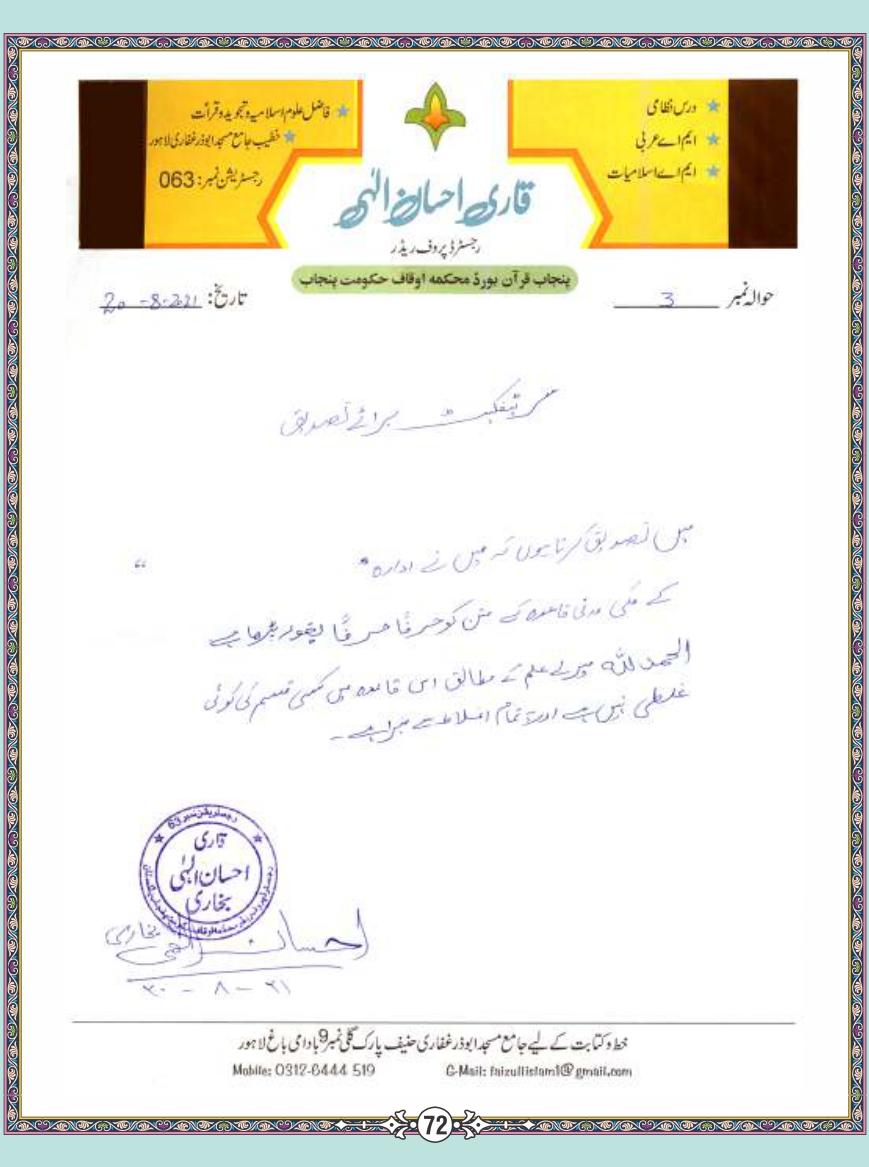 ★ درس نظامی
★ ایم اے عربی
★ ایم اے اسلامیات
★ فاضل علوم اسلامیہ و تجوید و قرأت
★ خطیب جامع مسجد ابوذر غفاری لاہور
رجسٹریشن نمبر: 063
قاری احسان الٰہی
رجسٹرڈ پروف ریڈر
پنجاب قرآن بورڈ محکمہ اوقاف حکومت پنجاب
حوالہ نمبر 3
تاریخ: 20-8-2021
سرٹیفکیٹ برائے تصدیق
میں تصدیق کرتا ہوں کہ میں نے ادارہ " "
کے مکی مدنی قاعدہ کے متن کو حرفاً حرفاً بغور پڑھا ہے
الحمد للہ میرے علم کے مطابق اس قاعدہ میں کسی قسم کی کوئی
غلطی نہیں ہے اور تمام اغلاط سے مبرا ہے۔
رجسٹریشن نمبر 63
قاری
احسان الٰہی
بخاری
احسان الٰہی بخاری
۲۰ - ۸ - ۲۱
خط و کتابت کے لیے جامع مسجد ابوذر غفاری حنیف پارک گلی نمبر 9 بادامی باغ لاہور
Mobile: 0312-6444 519 G-Mail: faizullislam1@gmail.com
72